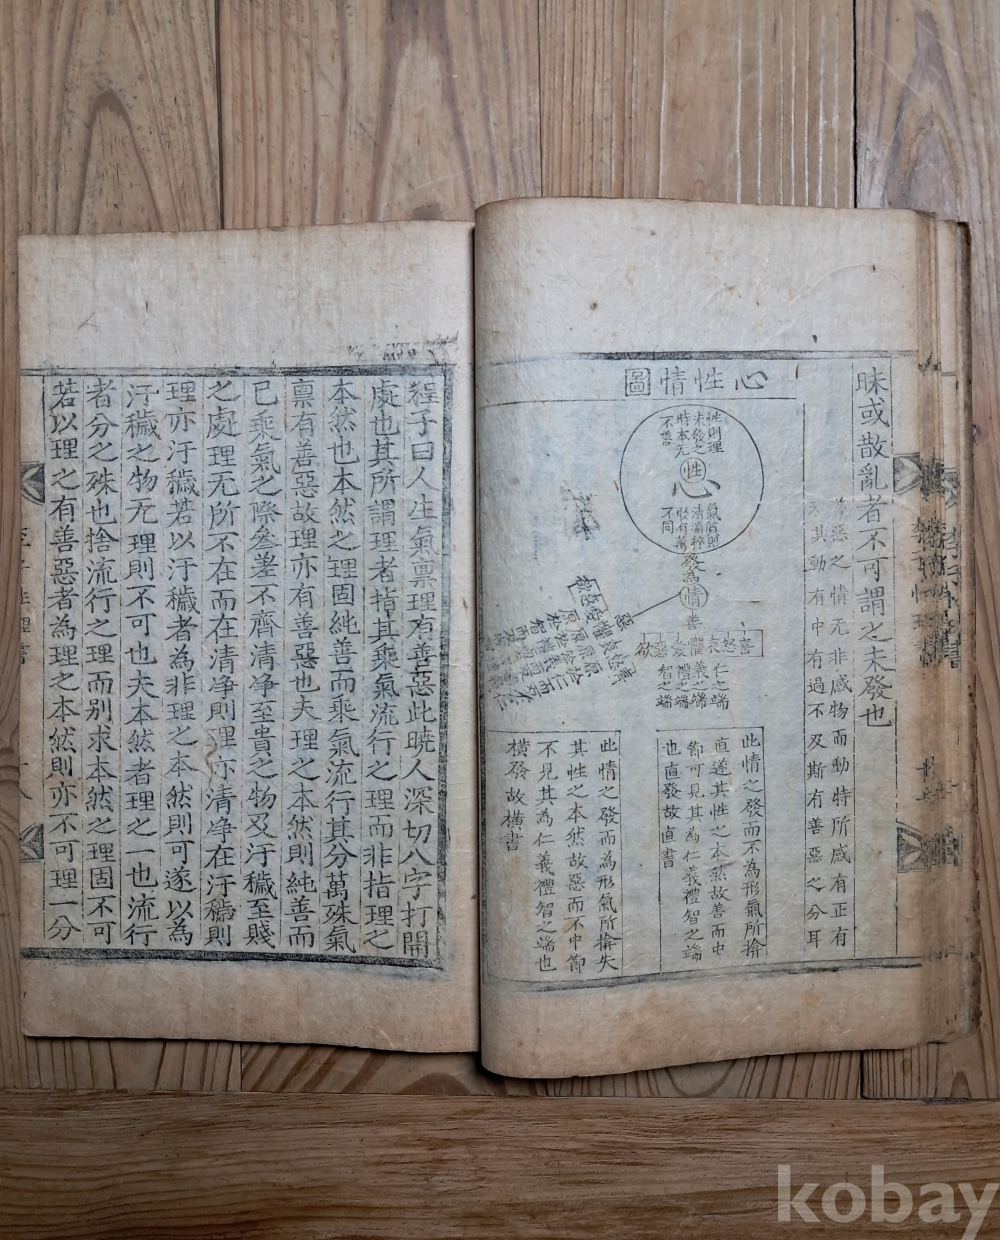 昧或散亂者不可謂之未發也
善惡之情无非感物而動特所感有正有
其動有中有過不及斯有善惡之分耳
心性情圖
性則理
未發之
時本无
不善
性
心
氣質則
清濁粹
不同
發為
情
善
惡
喜怒哀懼愛惡欲
仁之端
義之端
禮之端
智之端
此情之發而不為形氣所揜
直遂其性之本然故善而中
節可見其為仁義禮智之端
也直發故直書
此情之發而為形氣所揜失
其性之本然故惡而不中節
不見其為仁義禮智之端也
橫發故橫書
程子曰人生氣禀理有善惡此曉人深切八字打開
處也其所謂理者指其乘氣流行之理而非指理之
本然也本然之理固純善而乘氣流行其分萬殊氣
禀有善惡故理亦有善惡也夫理之本然則純善而
已乘氣之際參差不齊清净至貴之物及汙穢至賤
之處理无所不在而在清净則理亦清净在汙穢則
理亦汙穢若以汙穢者為非理之本然則可遂以為
汙穢之物无理則不可也夫本然者理之一也流行
者分之殊也捨流行之理而別求本然之理固不可
若以理之有善惡者為理之本然則亦不可理一分
kobay